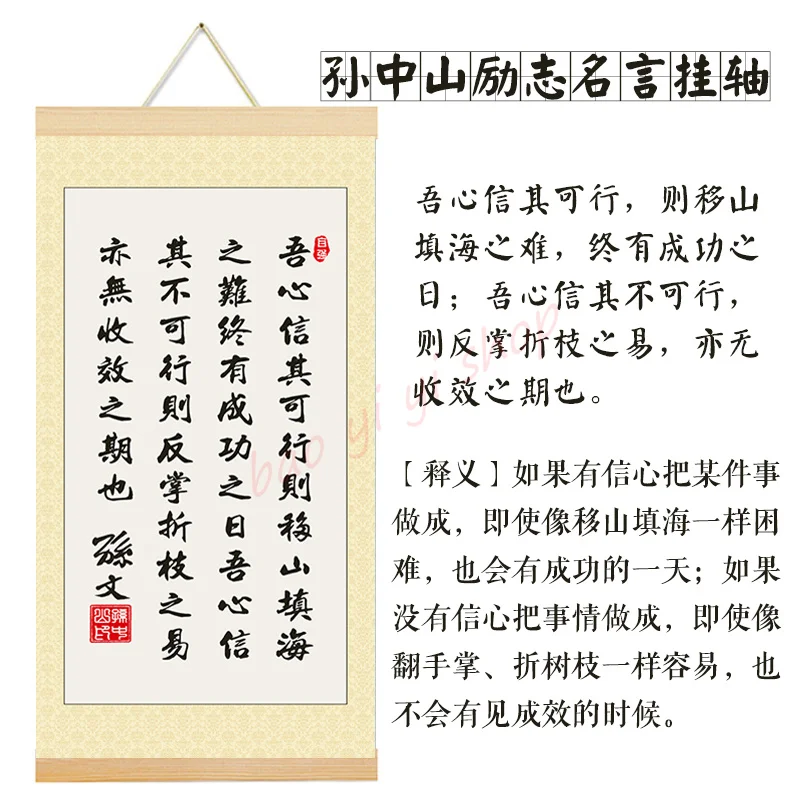 孙中山励志名言挂轴
吾心信其可行則移山填海
之難終有成功之日吾心信
其不可行則反掌折枝之易
亦無收效之期也
孫文
孫中
山印
吾心信其可行，则移山
填海之难，终有成功之
日；吾心信其不可行，
则反掌折枝之易，亦无
收效之期也。
【释义】如果有信心把某件事
做成，即使像移山填海一样困
难，也会有成功的一天；如果
没有信心把事情做成，即使像
翻手掌、折树枝一样容易，也
不会有见成效的时候。
bao yi yi shop